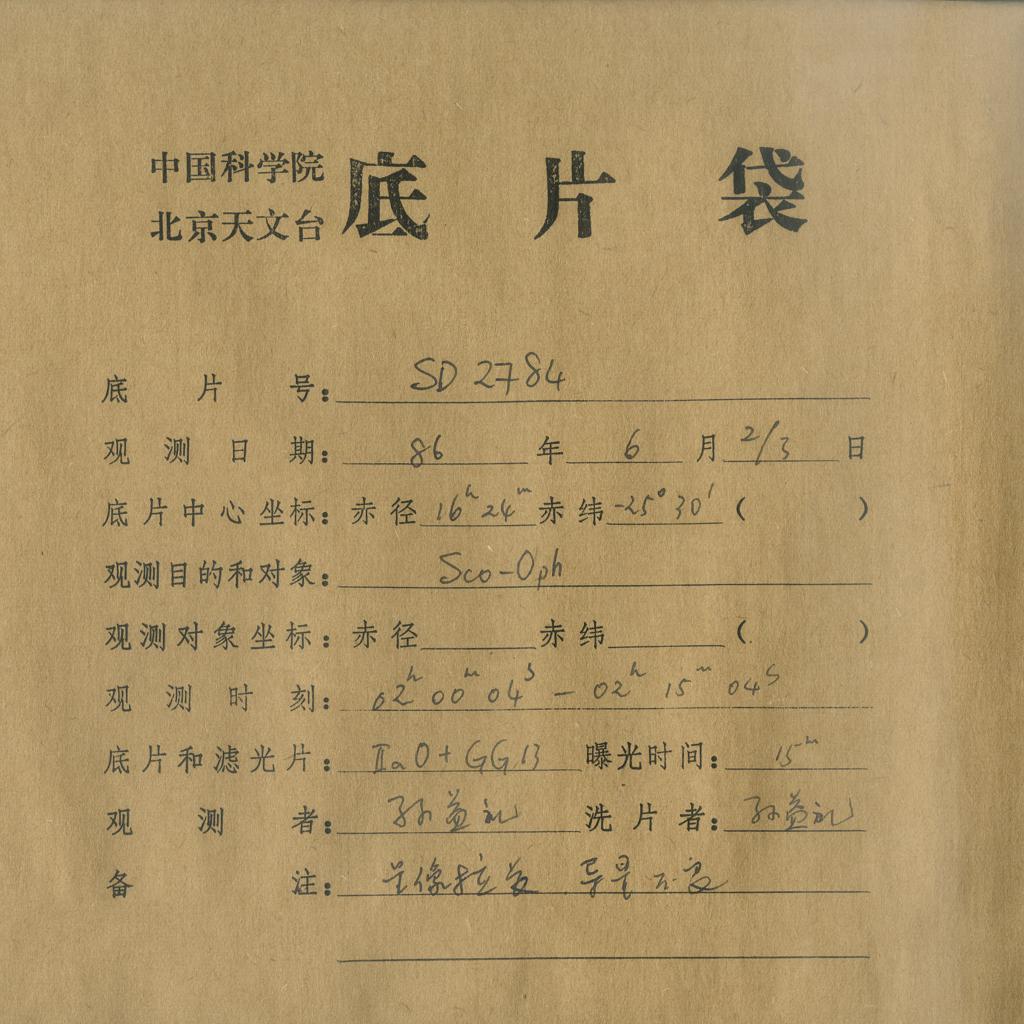 中国科学院
北京天文台
底片袋
底片号：SD 2784
观测日期：86年6月2/3日
底片中心坐标：赤径16ʰ24ᵐ赤纬-25°30′（ ）
观测目的和对象：Sco-Oph
观测对象坐标：赤径 赤纬 （ ）
观测时刻：02ʰ00ᵐ04ˢ — 02ʰ15ᵐ04ˢ
底片和滤光片：IIaO+GG13 曝光时间：15ᵐ
观测者：孙益礼 洗片者：孙益礼
备注：星像拉长 导星不良